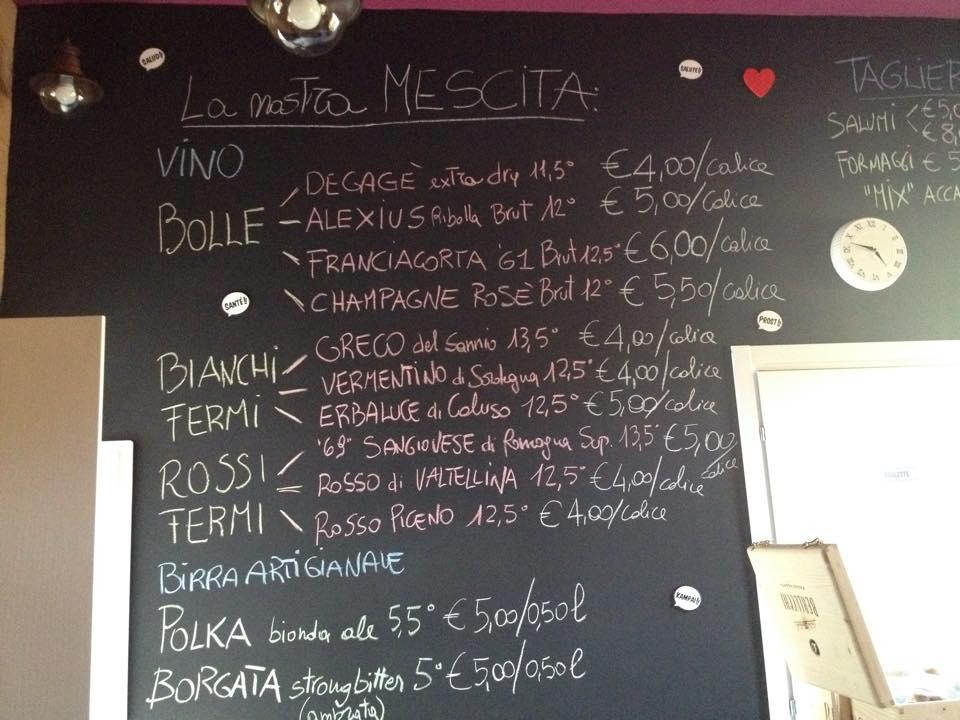 SALUD!
SALUTE!
La nostra MESCITA:
VINO
BOLLE
DEGAGÈ extra dry 11,5° € 4,00/calice
ALEXIUS Ribolla Brut 12° € 5,00/calice
FRANCIACORTA '61 Brut 12,5° € 6,00/calice
CHAMPAGNE ROSÈ Brut 12° € 5,50/calice
SANTÉ!
BIANCHI FERMI
GRECO del Sannio 13,5° € 4,00/calice
VERMENTINO di Sardegna 12,5° € 4,00/calice
ERBALUCE di Caluso 12,5° € 5,00/calice
ROSSI FERMI
"69" SANGIOVESE di Romagna Sup. 13,5° € 5,00 calice
ROSSO di VALTELLINA 12,5° € 4,00/calice
ROSSO PICENO 12,5° € 4,00/calice
BIRRA ARTIGIANALE
POLKA bionda ale 5,5° € 5,00/0,50 l
BORGATA strong bitter 5° € 5,00/0,50 l
(ambrata)
TAGLIER
SALUMI € 5,0
€ 8,0
FORMAGGI € 5
"MIX" ACCA
PROST!
KAMPAI!
TOILETTE